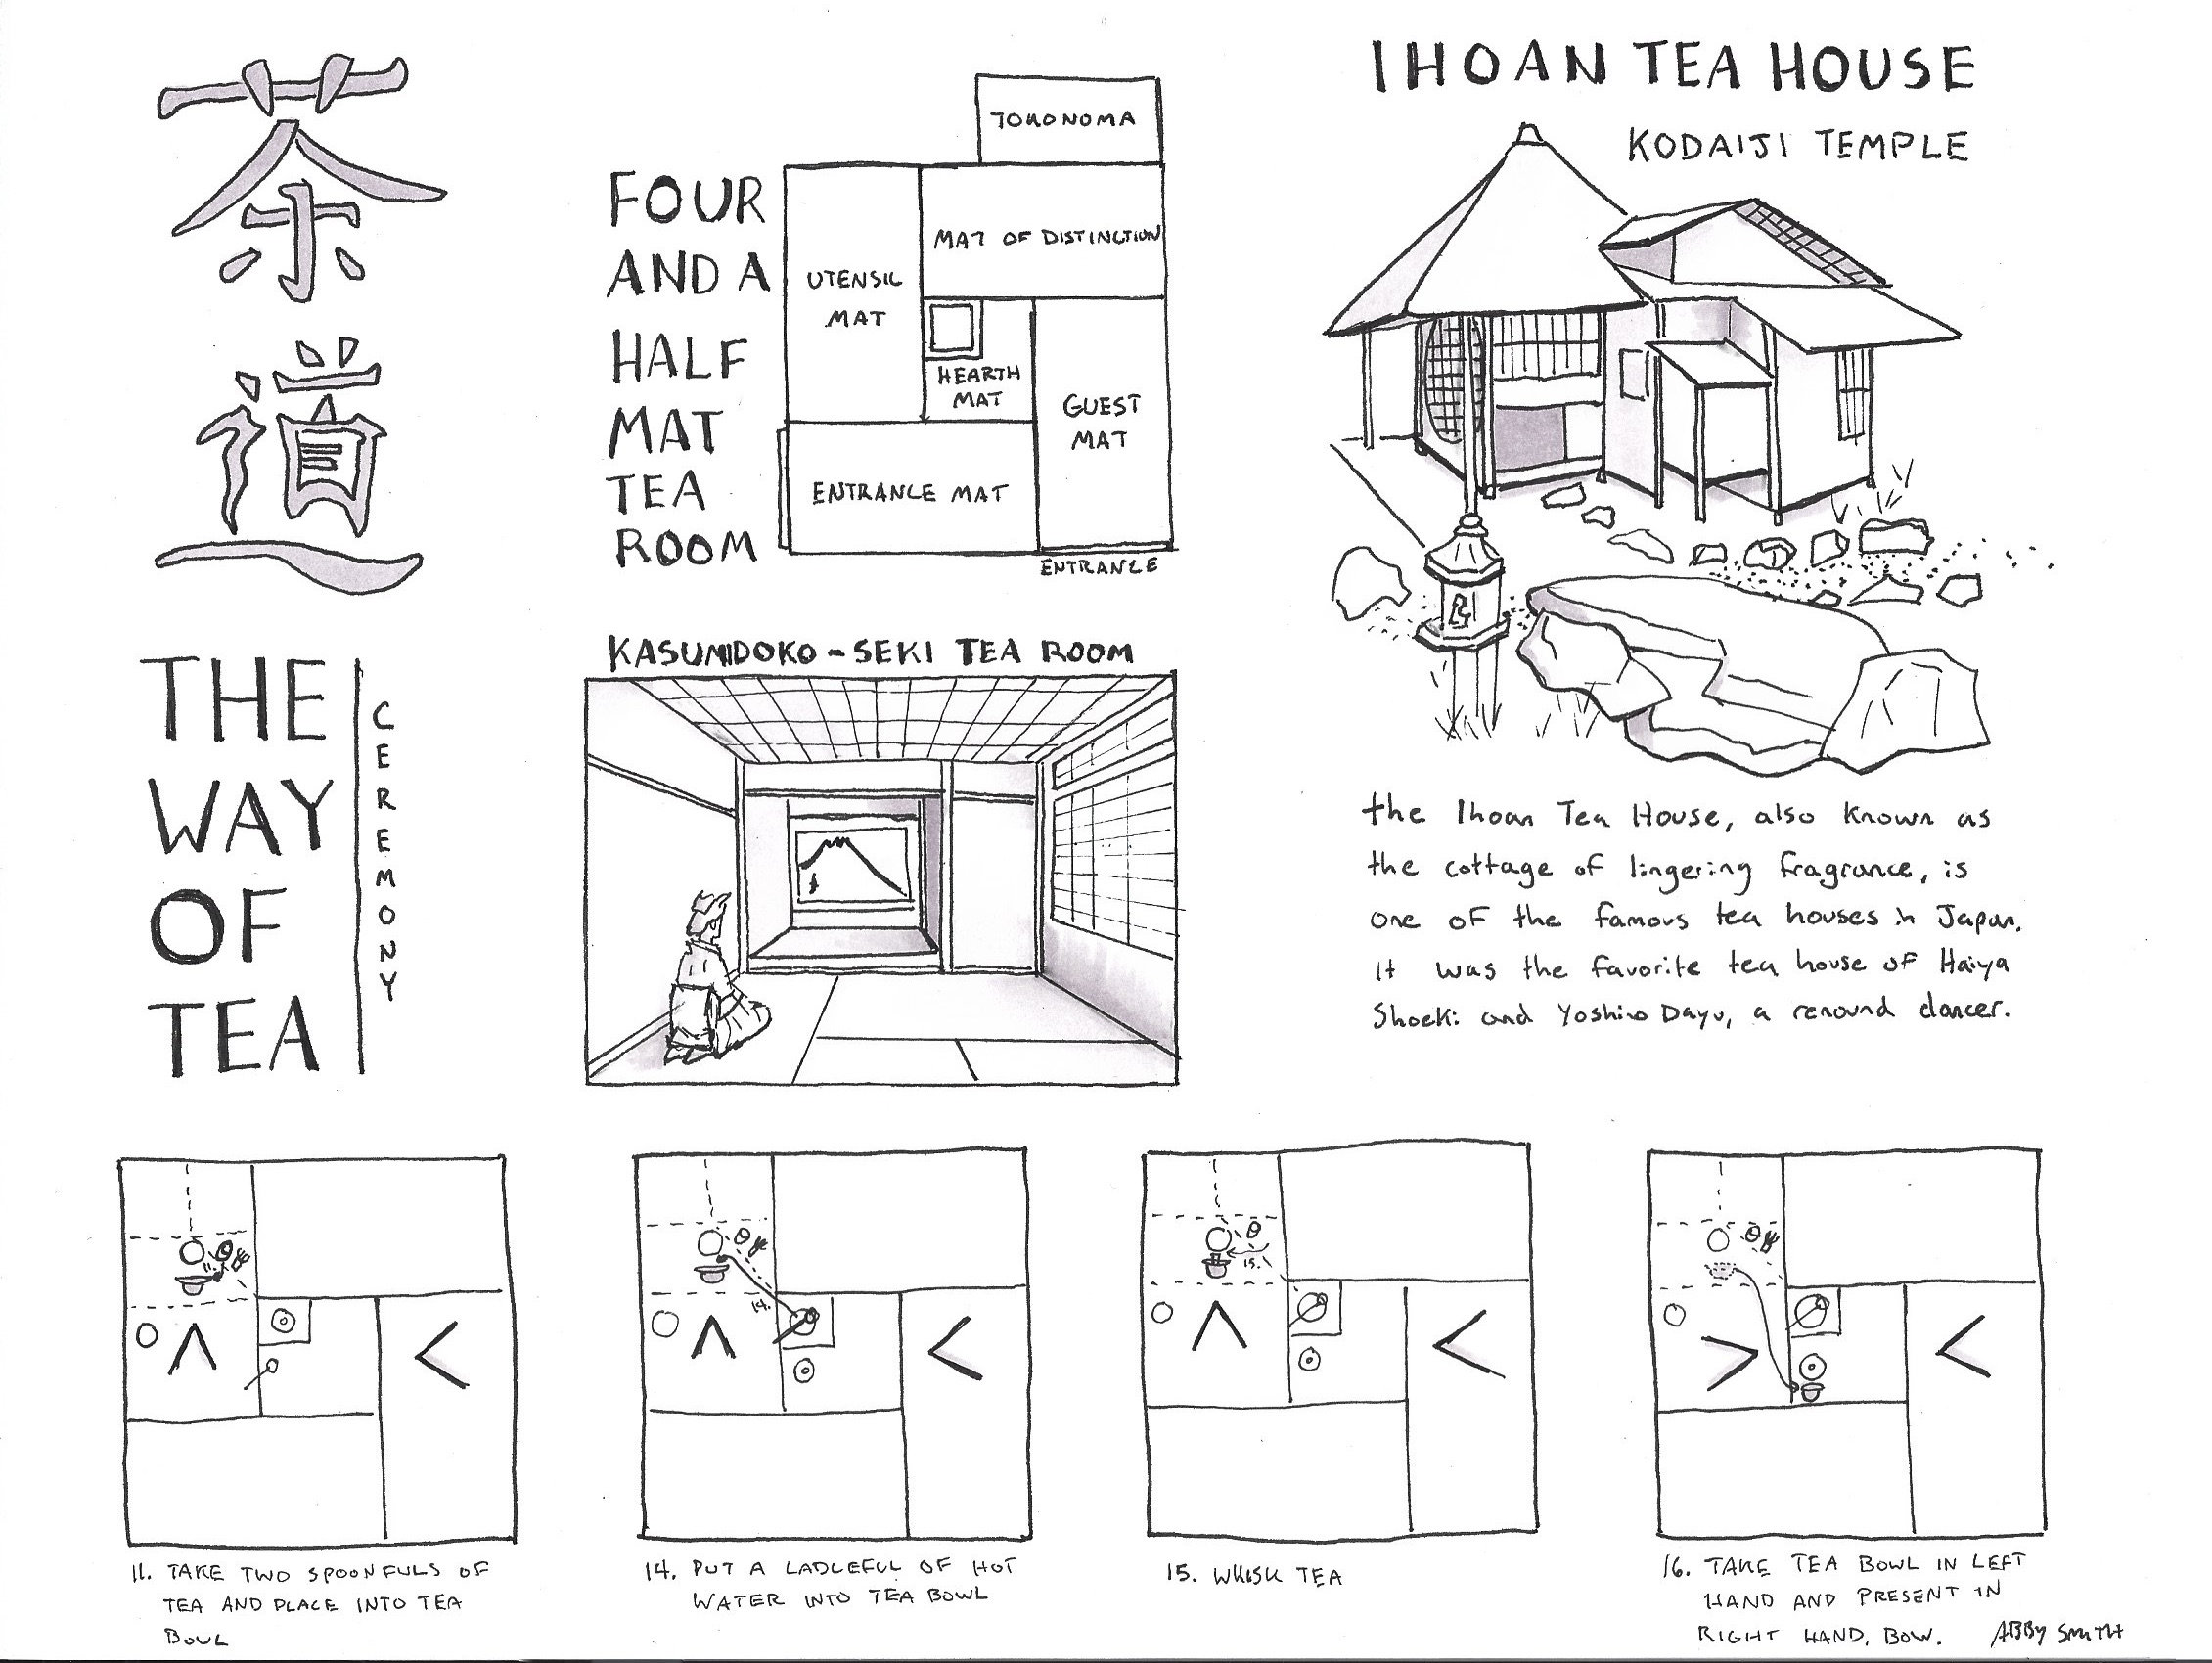 茶
道
THE
WAY
OF
TEA
CEREMONY
FOUR
AND A
HALF
MAT
TEA
ROOM
TOKONOMA
UTENSIL
MAT
MAT OF DISTINCTION
HEARTH
MAT
GUEST
MAT
ENTRANCE MAT
ENTRANCE
KASUMIDOKO-SEKI TEA ROOM
IHOAN TEA HOUSE
KODAIJI TEMPLE
the Ihoan Tea House, also known as
the cottage of lingering fragrance, is
one of the famous tea houses in Japan.
It was the favorite tea house of Haiya
Shoeki and Yoshino Dayu, a renound dancer.
11.
14.
15.
11. TAKE TWO SPOONFULS OF
TEA AND PLACE INTO TEA
BOWL
14. PUT A LADLEFUL OF HOT
WATER INTO TEA BOWL
15. WHISK TEA
16. TAKE TEA BOWL IN LEFT
HAND AND PRESENT IN
RIGHT HAND. BOW.
ABBY SMITH